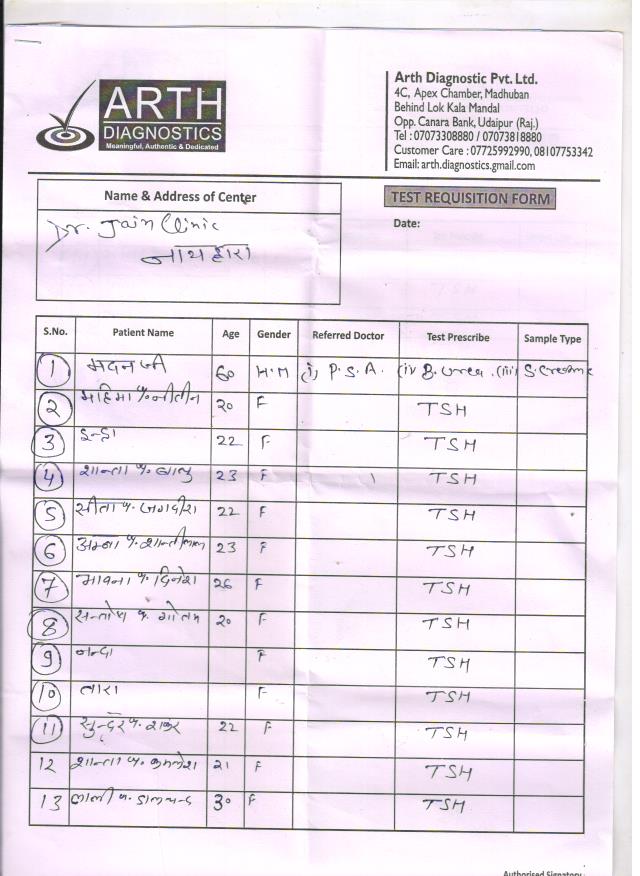 ARTH
DIAGNOSTICS
Meaningful, Authentic & Dedicated
Arth Diagnostic Pvt. Ltd.
4C, Apex Chamber, Madhuban
Behind Lok Kala Mandal
Opp. Canara Bank, Udaipur (Raj.)
Tel : 07073308880 / 07073818880
Customer Care : 07725992990, 08107753342
Email: arth.diagnostics.gmail.com
Name & Address of Center
TEST REQUISITION FORM
Dr. Jain Clinic
Date:
नाथद्वारा
S.No. Patient Name Age Gender Referred Doctor Test Prescribe Sample Type
1 मदन जी 60 M (i) P.S.A. (ii) B. Urea (iii)
2 महिमा नीतीन 20 F TSH
3 इन्द्रा 22 F TSH
4 शान्ता बाबु 23 F TSH
5 सीता जगदीश 22 F TSH
6 23 F TSH
7 भावना दिनेश 26 F TSH
8 सन्तोष गोतम 20 F TSH
9 नन्दा F TSH
10 तारा F TSH
11 सुन्दर शंकर 22 F TSH
12 शान्ता कमलेश 21 F TSH
13 लाली डालचन्द 30 F TSH
Authorised Signatory